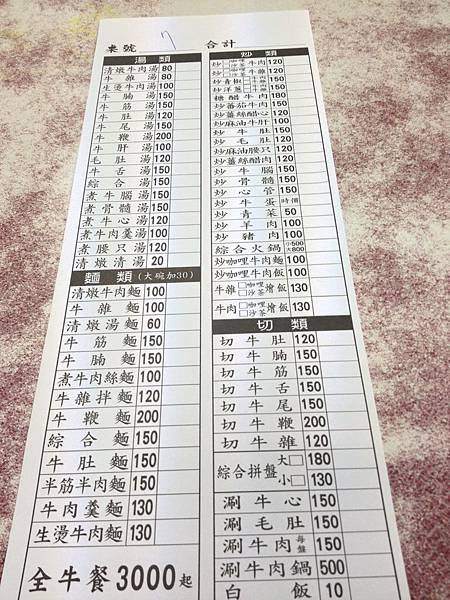 桌號 7 合計
湯類
清燉牛肉湯 80
牛雜湯 80
生燙牛肉湯 100
牛腩湯 150
牛筋湯 150
牛肚湯 120
牛尾湯 150
牛鞭湯 200
牛肝湯 100
毛肚湯 120
牛舌湯 150
綜合湯 150
煮牛腦湯 150
煮骨髓湯 150
煮牛心湯 120
煮牛肉羹湯 100
煮腰只湯 120
清燉清湯 20
麵類(大碗加30)
清燉牛肉麵 100
牛雜麵 100
清燉湯麵 60
牛筋麵 150
牛腩麵 150
煮牛肉絲麵 100
牛雜拌麵 120
牛鞭麵 200
綜合麵 150
牛肚麵 150
半筋半肉麵 150
牛肉羹麵 130
生燙牛肉麵 130
全牛餐3000起
炒類
炒□咖哩□沙茶牛肉 120
炒□咖哩□沙茶牛雜 120
炒青椒□牛肉□牛雜 150
炒洋蔥□牛肉□牛雜 150
糖醋牛肉 180
炒蕃茄牛肉 150
炒薑絲醋心 120
炒麻油牛肝 100
炒牛肚 150
炒毛肚 120
炒麻油腰只 120
炒薑絲醋肉 120
炒牛腦 150
炒骨髓 150
炒心管 150
炒牛蛋 時價
炒青菜 50
炒羊肉 100
炒豬肉 100
綜合火鍋 小500 大800
炒咖哩牛肉麵 100
炒咖哩牛肉飯 100
牛雜□咖哩□沙茶燴飯 130
牛肉□咖哩□沙茶燴飯 130
切類
切牛肚 120
切牛腩 150
切牛筋 150
切牛舌 150
切牛尾 150
切牛鞭 200
切牛雜 120
綜合拼盤 大□ 180
小□ 130
涮牛心 150
涮毛肚 150
涮牛肉 每盤 150
涮牛肉鍋 500
白飯 10